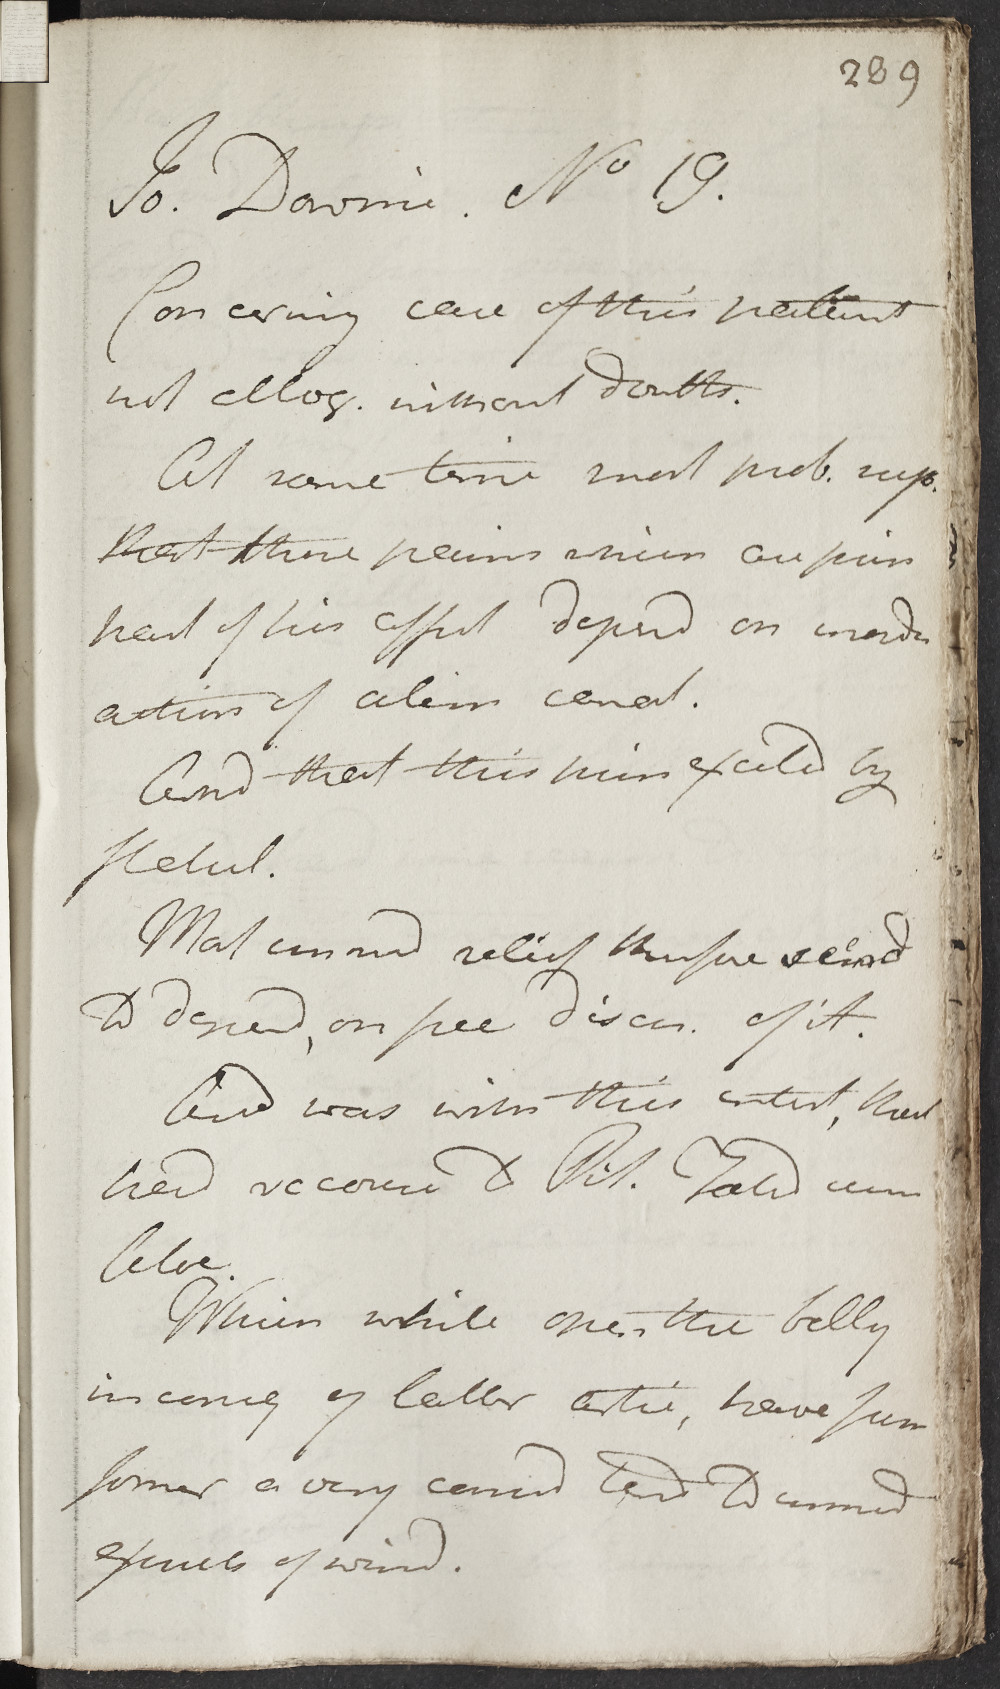 289
Jo. Downie. No 19.
Concerning case of this patient
not altog. without doubts.
At same time most prob. sup.
that those pains which are prin
part of his affect depend on inord
action of alim canal.
And that this prin excited by
flatul.
Most immed relief therefore seemd
to depend, on free discu. of it.
And was with this intent, that
had recourse to Pil. Foetid cum
Aloe.
Which while open the belly
in conseq of latter artic, have from
former a very consid tend to immed
expuls of wind.